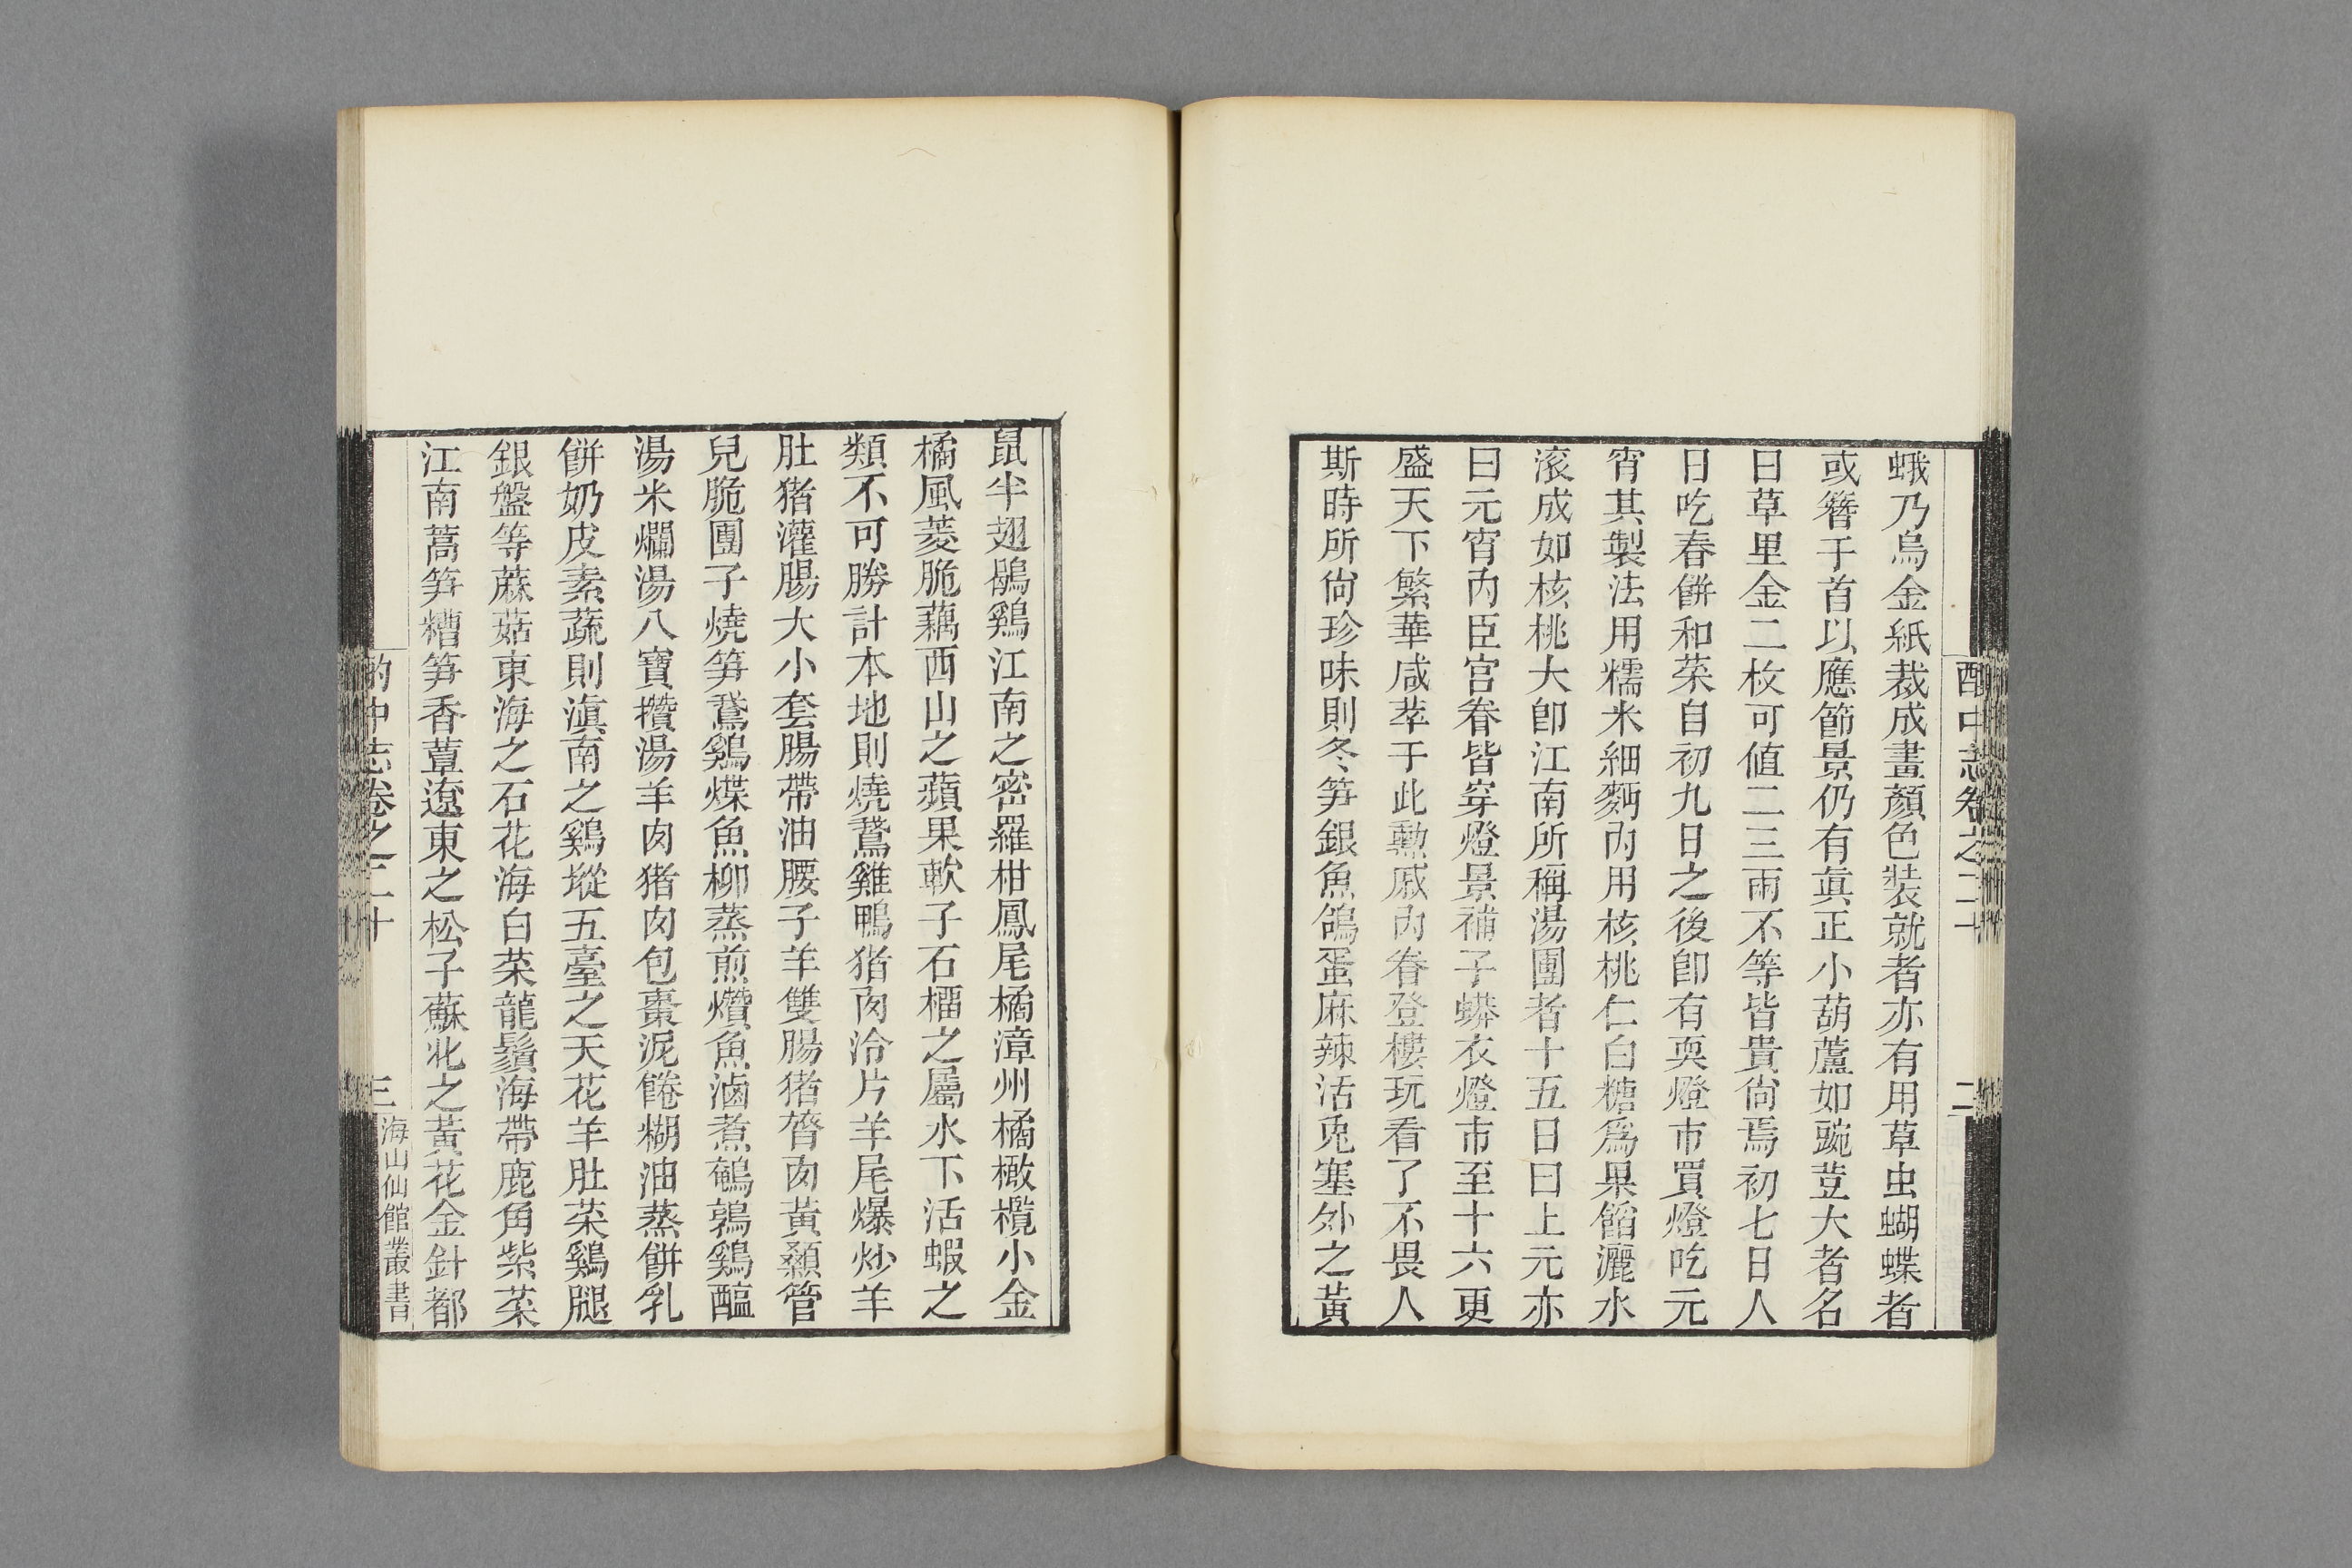 酌中志卷之二十
二
蛾乃烏金紙裁成畫顏色裝就者亦有用草虫蝴蝶者
或簪于首以應節景仍有眞正小葫蘆如豌荳大者名
曰草里金二枚可値二三兩不等皆貴尙焉初七日人
日吃春餅和菜自初九日之後卽有耍燈市買燈吃元
宵其製法用糯米細麪內用核桃仁白糖爲果餡灑水
滾成如核桃大卽江南所稱湯團者十五日曰上元亦
曰元宵內臣宮眷皆穿燈景補子蟒衣燈市至十六更
盛天下繁華咸萃于此勳戚內眷登樓玩看了不畏人
斯時所尙珍味則冬笋銀魚鴿蛋麻辣活兎塞外之黃
鼠半翅鶡鷄江南之密羅柑鳳尾橘漳州橘橄欖小金
橘風菱脆藕西山之蘋果軟子石榴之屬水下活蝦之
類不可勝計本地則燒鵞雞鴨猪肉泠片羊尾爆炒羊
肚猪灌腸大小套腸帶油腰子羊雙腸猪膂肉黃顙管
兒脆團子燒笋鵞鷄煠魚柳蒸煎爦魚滷煮鵪鶉鷄醢
湯米爛湯八寶攢湯羊肉猪肉包棗泥餈糊油蒸餅乳
餅奶皮素蔬則滇南之鷄㙡五臺之天花羊肚菜鷄腿
銀盤等蔴菇東海之石花海白菜龍鬚海帶鹿角紫菜
江南蒿笋糟笋香蕈遼東之松子蘇北之黃花金針都
酌中志卷之二十
三
海山仙館叢書